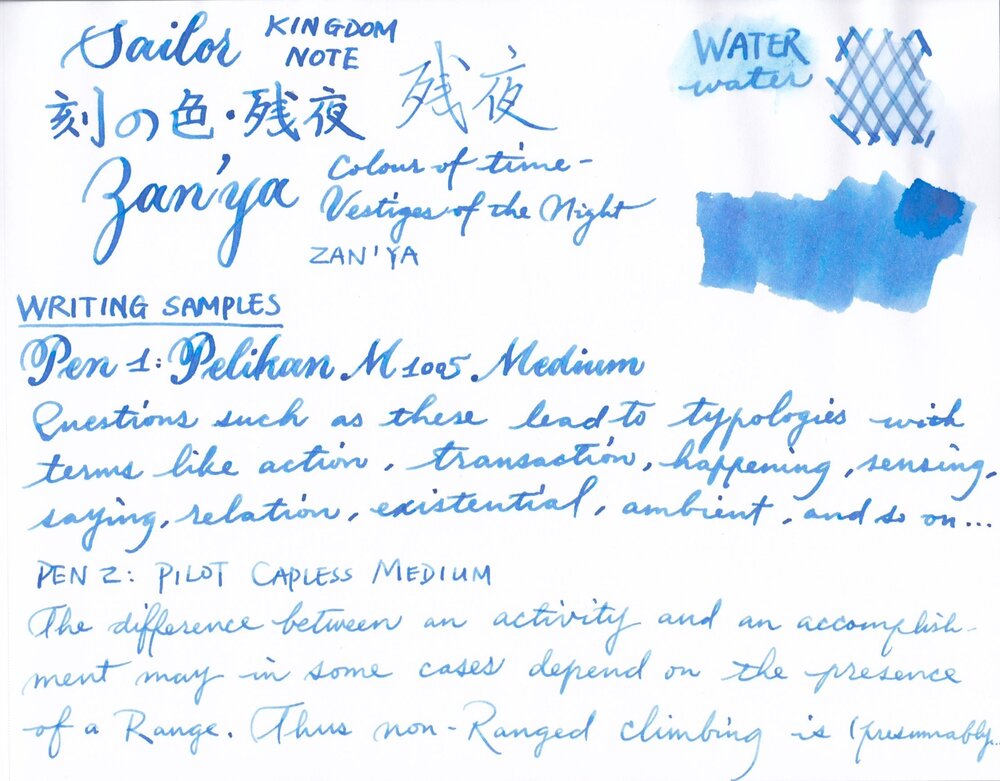 Sailor KINGDOM NOTE
刻の色・残夜 残夜
Zan'ya
Colour of time -
Vestiges of the Night
ZAN'YA
WATER
water
WRITING SAMPLES
Pen 1: Pelikan M1005 Medium
Questions such as these lead to typologies with
terms like action, transaction, happening, sensing,
saying, relation, existential, ambient, and so on...
PEN 2: PILOT CAPLESS MEDIUM
The difference between an activity and an accomplish-
ment may in some cases depend on the presence
of a Range. Thus non-Ranged climbing is (presumably...